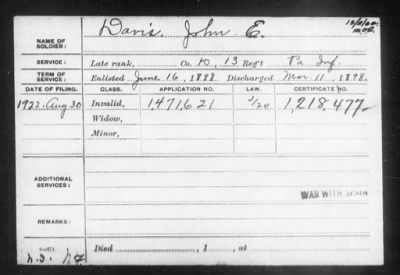 Davis, John E.
NAME OF SOLDIER:
SERVICE: Late rank, Co. D, 13 Reg't Pa Inf.
TERM OF SERVICE: Enlisted June 16, 1898. Discharged Mar. 11, 1898.
DATE OF FILING. CLASS. APPLICATION NO. LAW. CERTIFICATE NO.
1922. Aug 30 Invalid, 1,471,621 1,218,477
Widow,
Minor,
ADDITIONAL SERVICES:
WAR WITH SPAIN
REMARKS:
Died , 1 , at